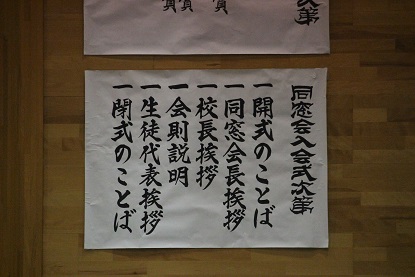 次第
同窓会入会式次第
一開式のことば
一同窓会長挨拶
一校長挨拶
一会則説明
一生徒代表挨拶
一閉式のことば